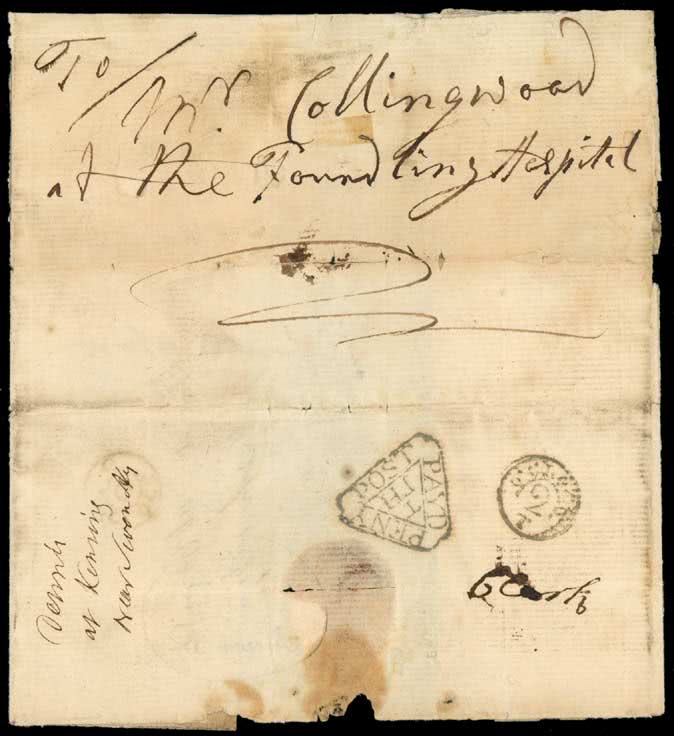 To/ Mr. Collingwood
at the Foundling Hospital
PENY
POST
PAYD
TH
Dennis
at Kenning
near
Clark